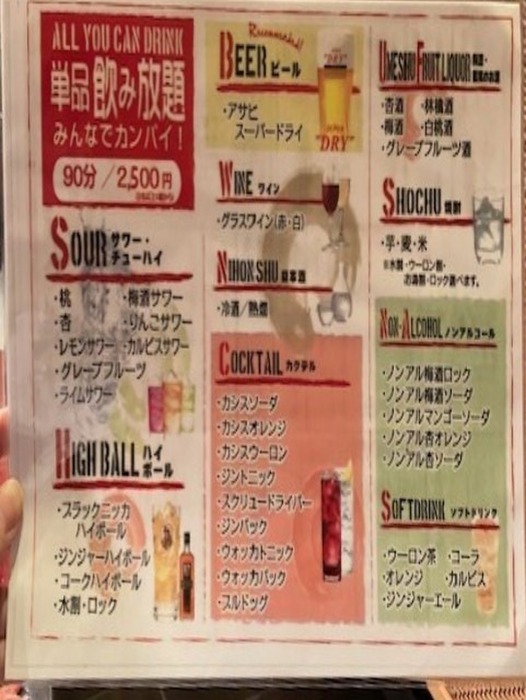 ALL YOU CAN DRINK
単品飲み放題
みんなでカンパイ！
90分／2,500円
SOUR サワー・
チューハイ
・桃 ・梅酒サワー
・杏 ・りんごサワー
・レモンサワー ・カルピスサワー
・グレープフルーツ
・ライムサワー
HIGH BALL ハイ
ボール
・ブラックニッカ
ハイボール
・ジンジャーハイボール
・コークハイボール
・水割・ロック
Recommended!
BEER ビール
・アサヒ
スーパードライ
"DRY"
SUPER
"DRY"
WINE ワイン
・グラスワイン(赤・白)
NIHONSHU 日本酒
・冷酒／熱燗
COCKTAIL カクテル
・カシスソーダ
・カシスオレンジ
・カシスウーロン
・ジントニック
・スクリュードライバー
・ジンバック
・ウォッカトニック
・ウォッカバック
・ブルドッグ
UMESHU FRUIT LIQUOR 梅酒・
果実のお酒
・杏酒 ・林檎酒
・梅酒 ・白桃酒
・グレープフルーツ酒
SHOCHU 焼酎
・芋・麦・米
※水割・ウーロン割・
お湯割・ロック選べます。
NON-ALCOHOL ノンアルコール
・ノンアル梅酒ロック
・ノンアル梅酒ソーダ
・ノンアルマンゴーソーダ
・ノンアル杏オレンジ
・ノンアル杏ソーダ
SOFTDRINK ソフトドリンク
・ウーロン茶 ・コーラ
・オレンジ ・カルピス
・ジンジャーエール